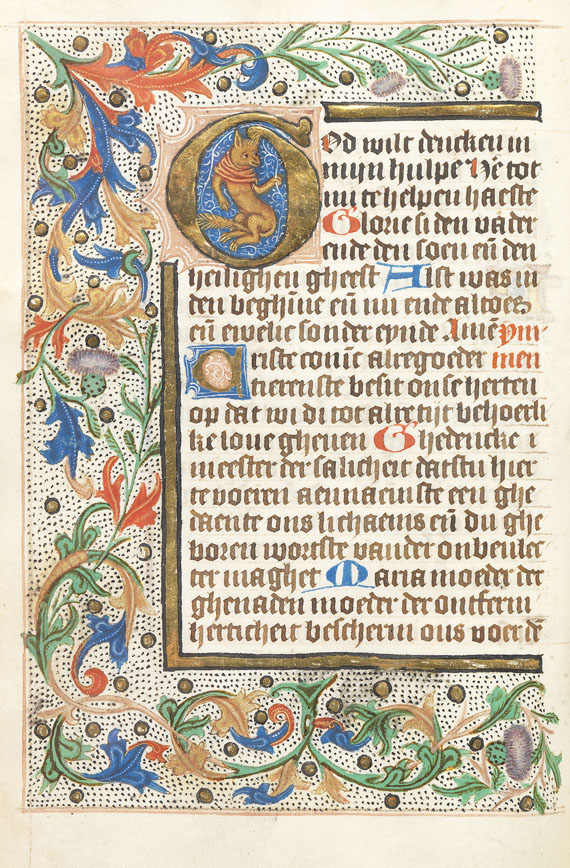 God wilt dencken in
mijn hulpe He tot
mi te helpen haeste
Glorie si den vader
ende den soen eñ den
heilighen gheest Alst was in
den beghīne eñ nu ende altoes
eñ ewelic sonder eynde Amē ym
Criste coninc alregoeder men
tierenste besit onse herten
op dat wi di tot alre tijt behoerli
ke loue gheuen Ghedencke i
meester der salicheit datstu hier
te voeren aennaemste een ghe
daente ons lichaems eñ du ghe
boren wortste vander onbeulec
ter maghet Maria moeder der
ghenaden moeder der ontferm
herticheit bescherm ons voer dē